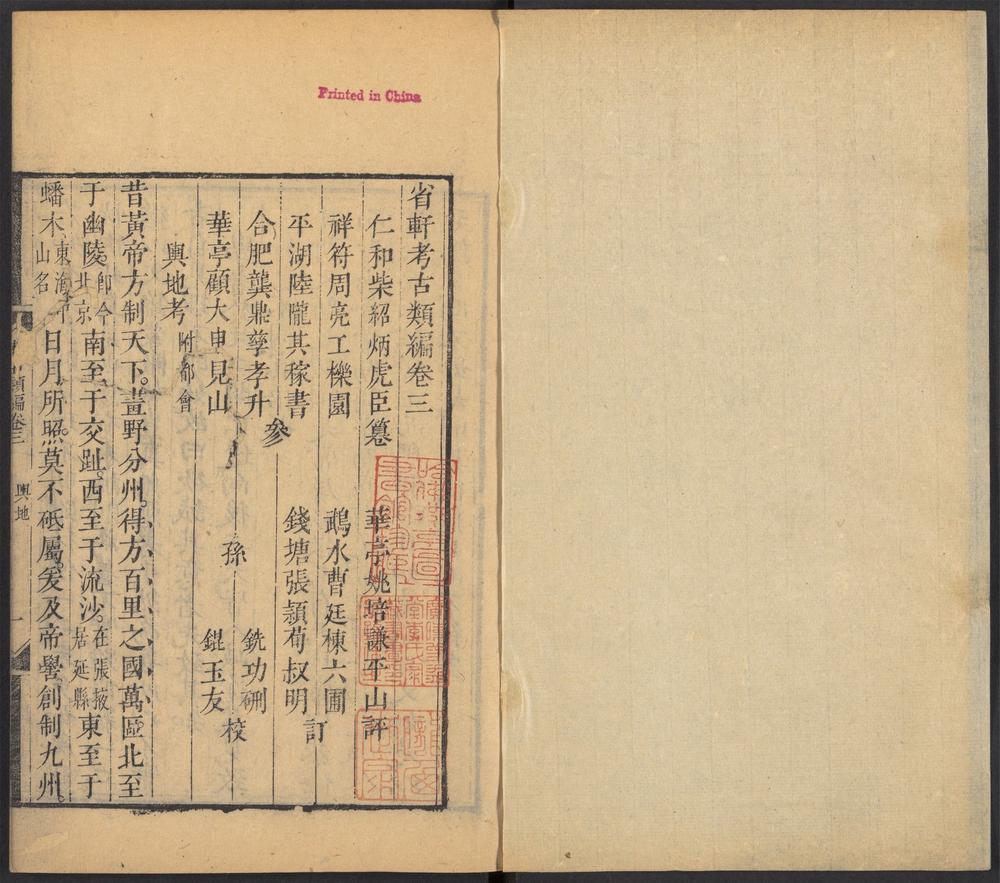 Printed in China
省軒考古類編卷三
仁和柴紹炳虎臣纂
華亭姚培謙平山評
祥符周亮工櫟園
平湖陸隴其稼書
合肥龔鼎孳孝升
華亭顧大申見山
參
鵡水曹廷棟六圃
錢塘張頴荀叔明
訂
孫
銑功硎
錕玉友
校
輿地考附都會
昔黃帝方制天下。畫野分州。得方百里之國萬區北至
于幽陵。卽今北京南至于交趾。西至于流沙。在張掖居延縣東至于
蟠木東海中山名日月所照。莫不砥屬。爰及帝嚳創制九州。
類編卷三
輿地
一